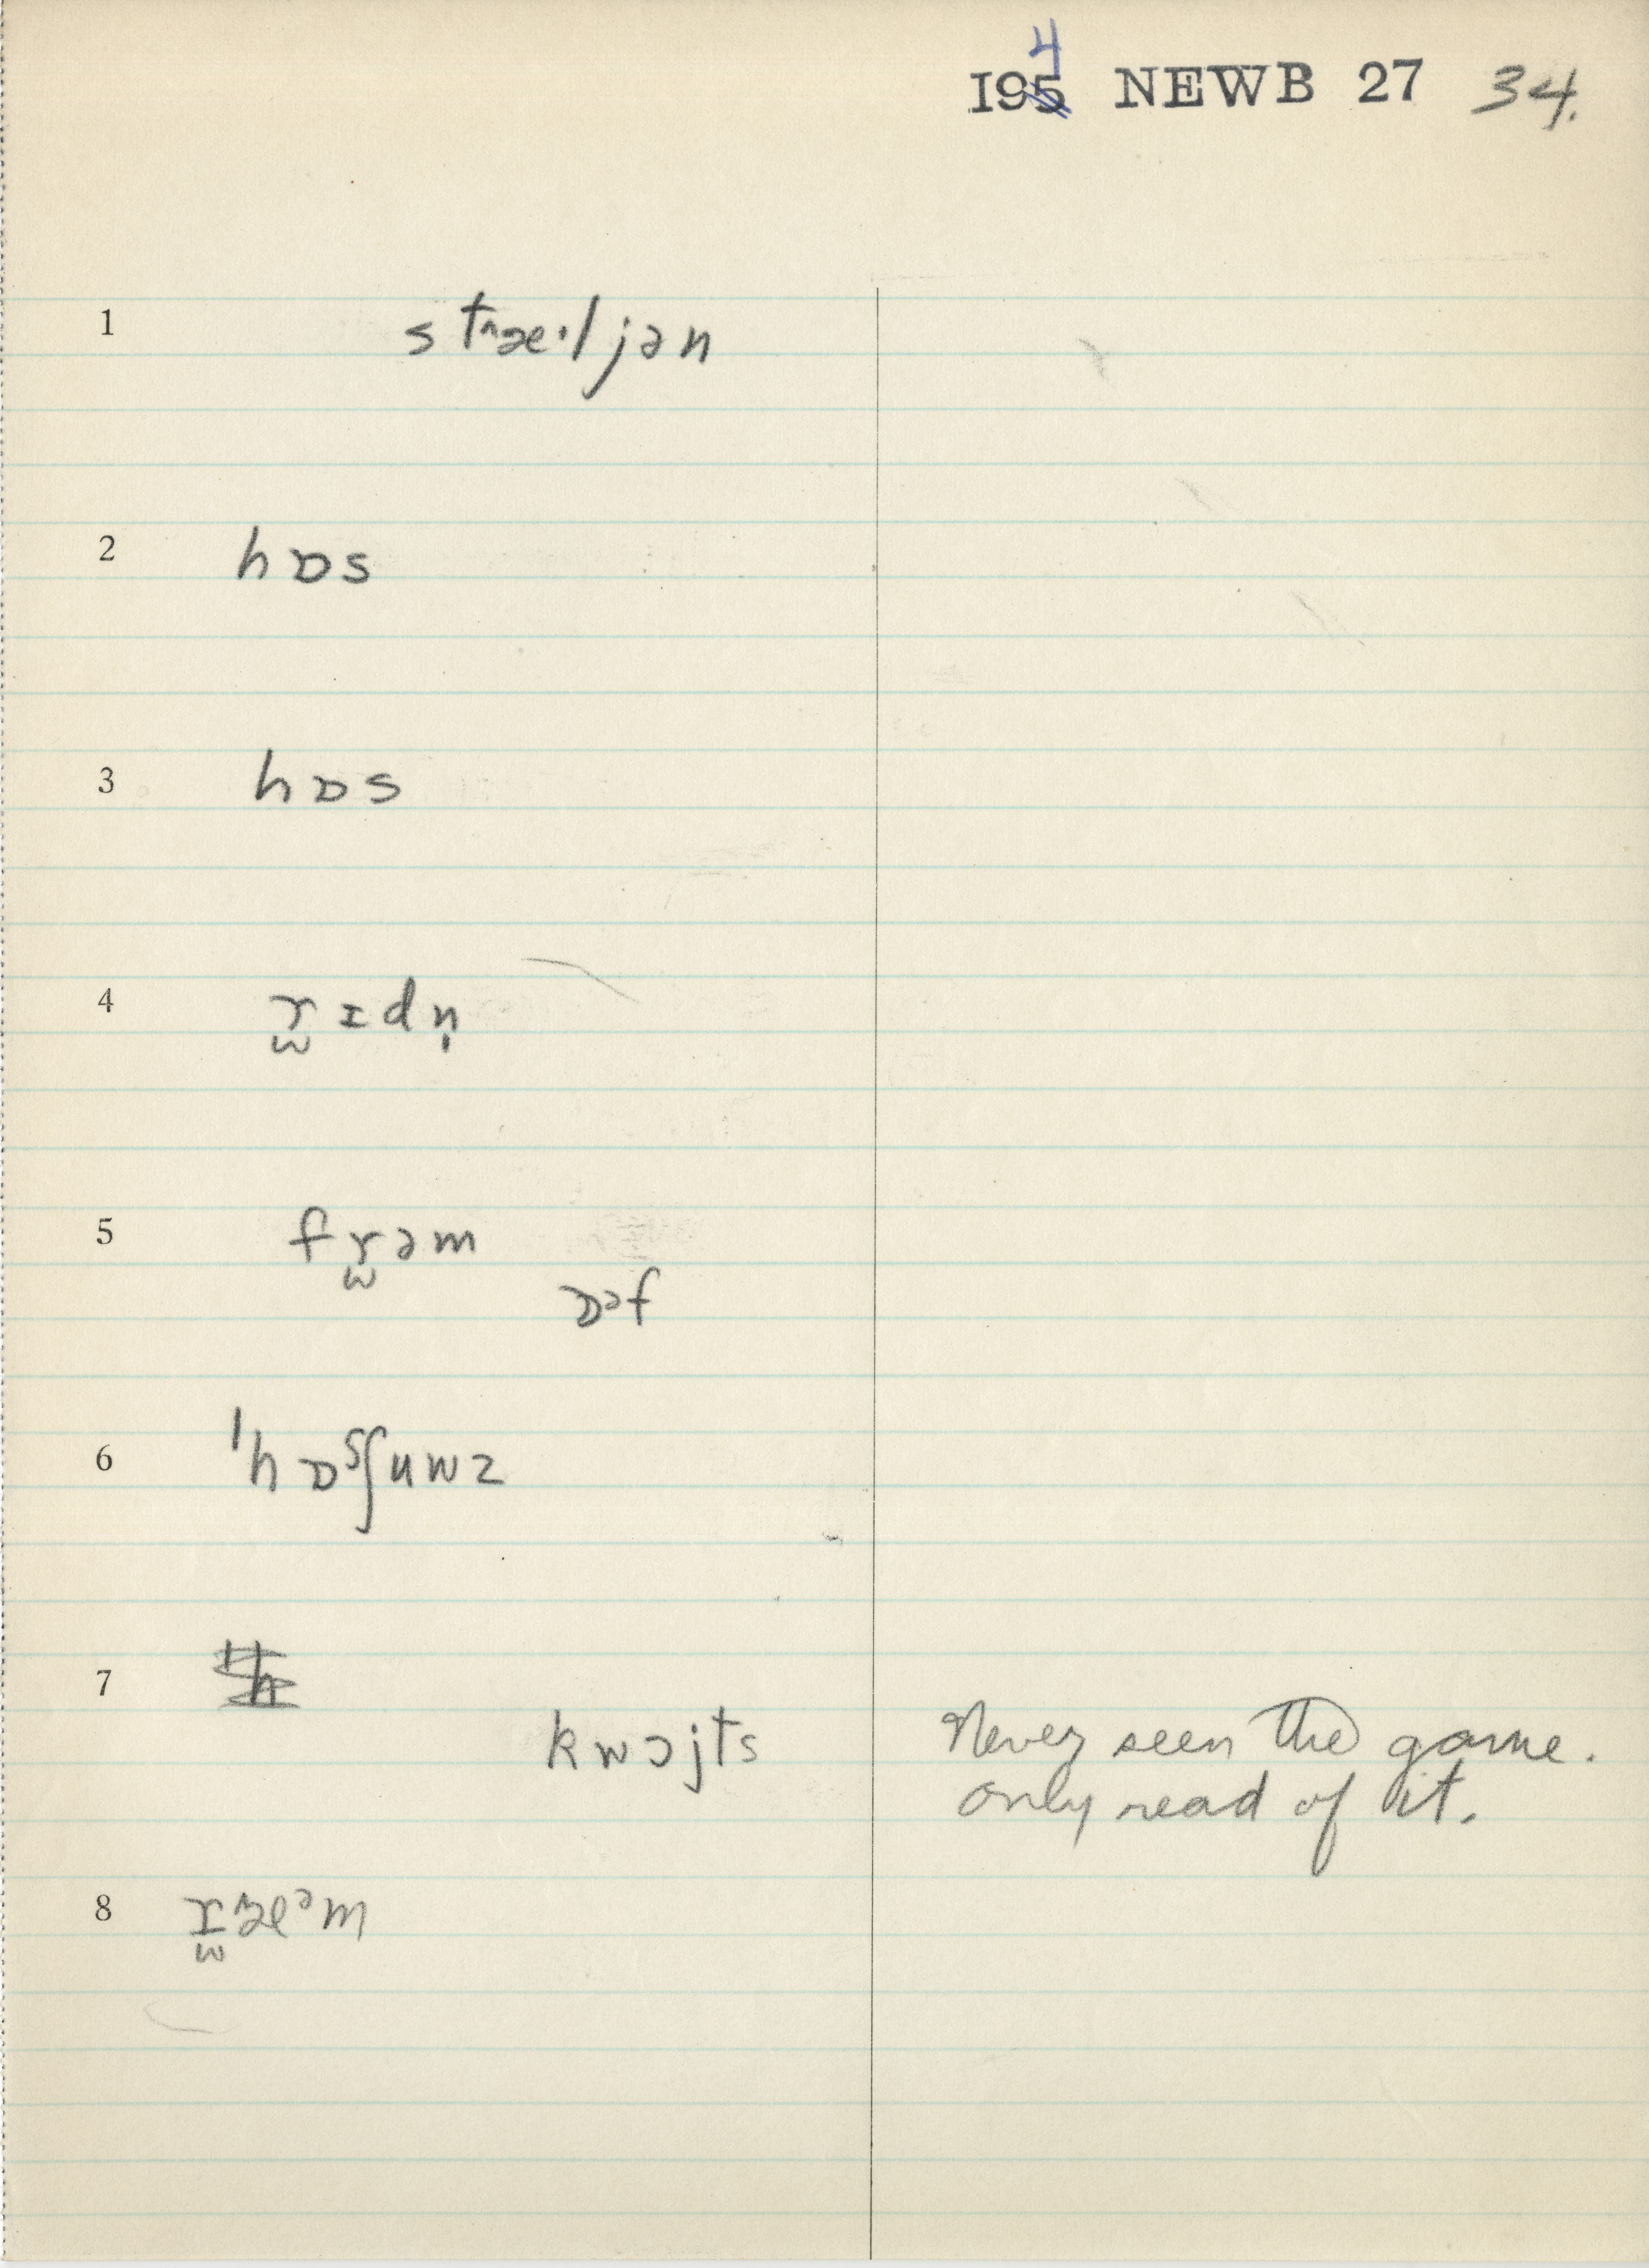 194 NEWB 27 34.
1 stæ^·ljən
2 hɒs
3 hɒs
4 r̫ɪdn̩
5 fr̫əm
ɒᵊf
6 ˈhɒˢʃuwz
7
kwɔjts Never seen the game.
Only read of it.
8 r̫æᵊm